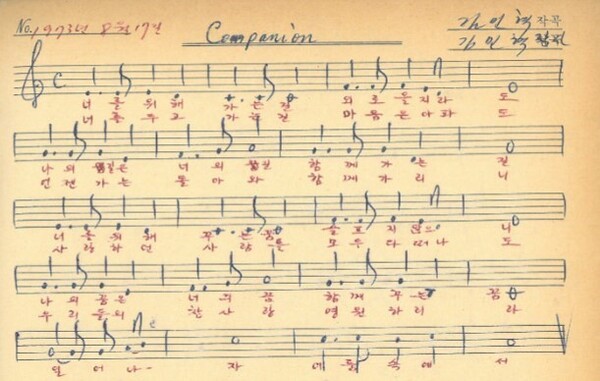 No. 1973년 8월 17일
Companion
김인혁 작곡
김인혁
너를 위해 가는 길 외로울지라 도
너를 두고 가는 길 마음은 아파 도
나의 길은 너의 길 함께 가는 길
언젠가는 돌아와 함께 가리 니
너를 위해 꾸는 꿈 슬프지 않으 니
사랑하던 사람들 모두 다 떠나 도
나의 꿈은 너의 꿈 함께 꾸는 꿈
우리들의 한 사랑 영원하리 라
일어나 - 자 어둠 속에 서